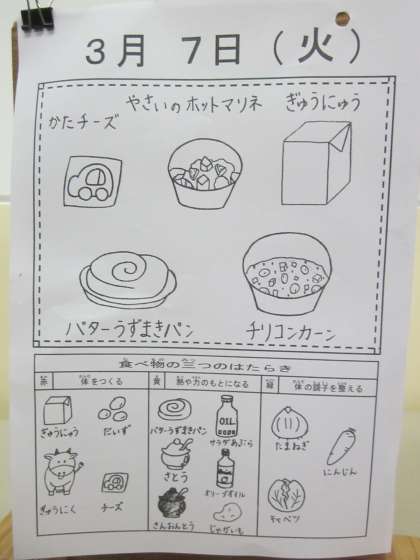 3月 7日 (火)
やさいのホットマリネ
ぎゅうにゅう
かたチーズ
バターうずまきパン
チリコンカーン
食べ物の三つのはたらき
赤 体をつくる
黄 熱や力のもとになる
緑 体の調子を整える
ぎゅうにゅう
だいず
ぎゅうにく
チーズ
バターうずまきパン
サラダあぶら
OIL
さとう
オリーブオイル
さんおんとう
じゃがいも
たまねぎ
にんじん
キャベツ